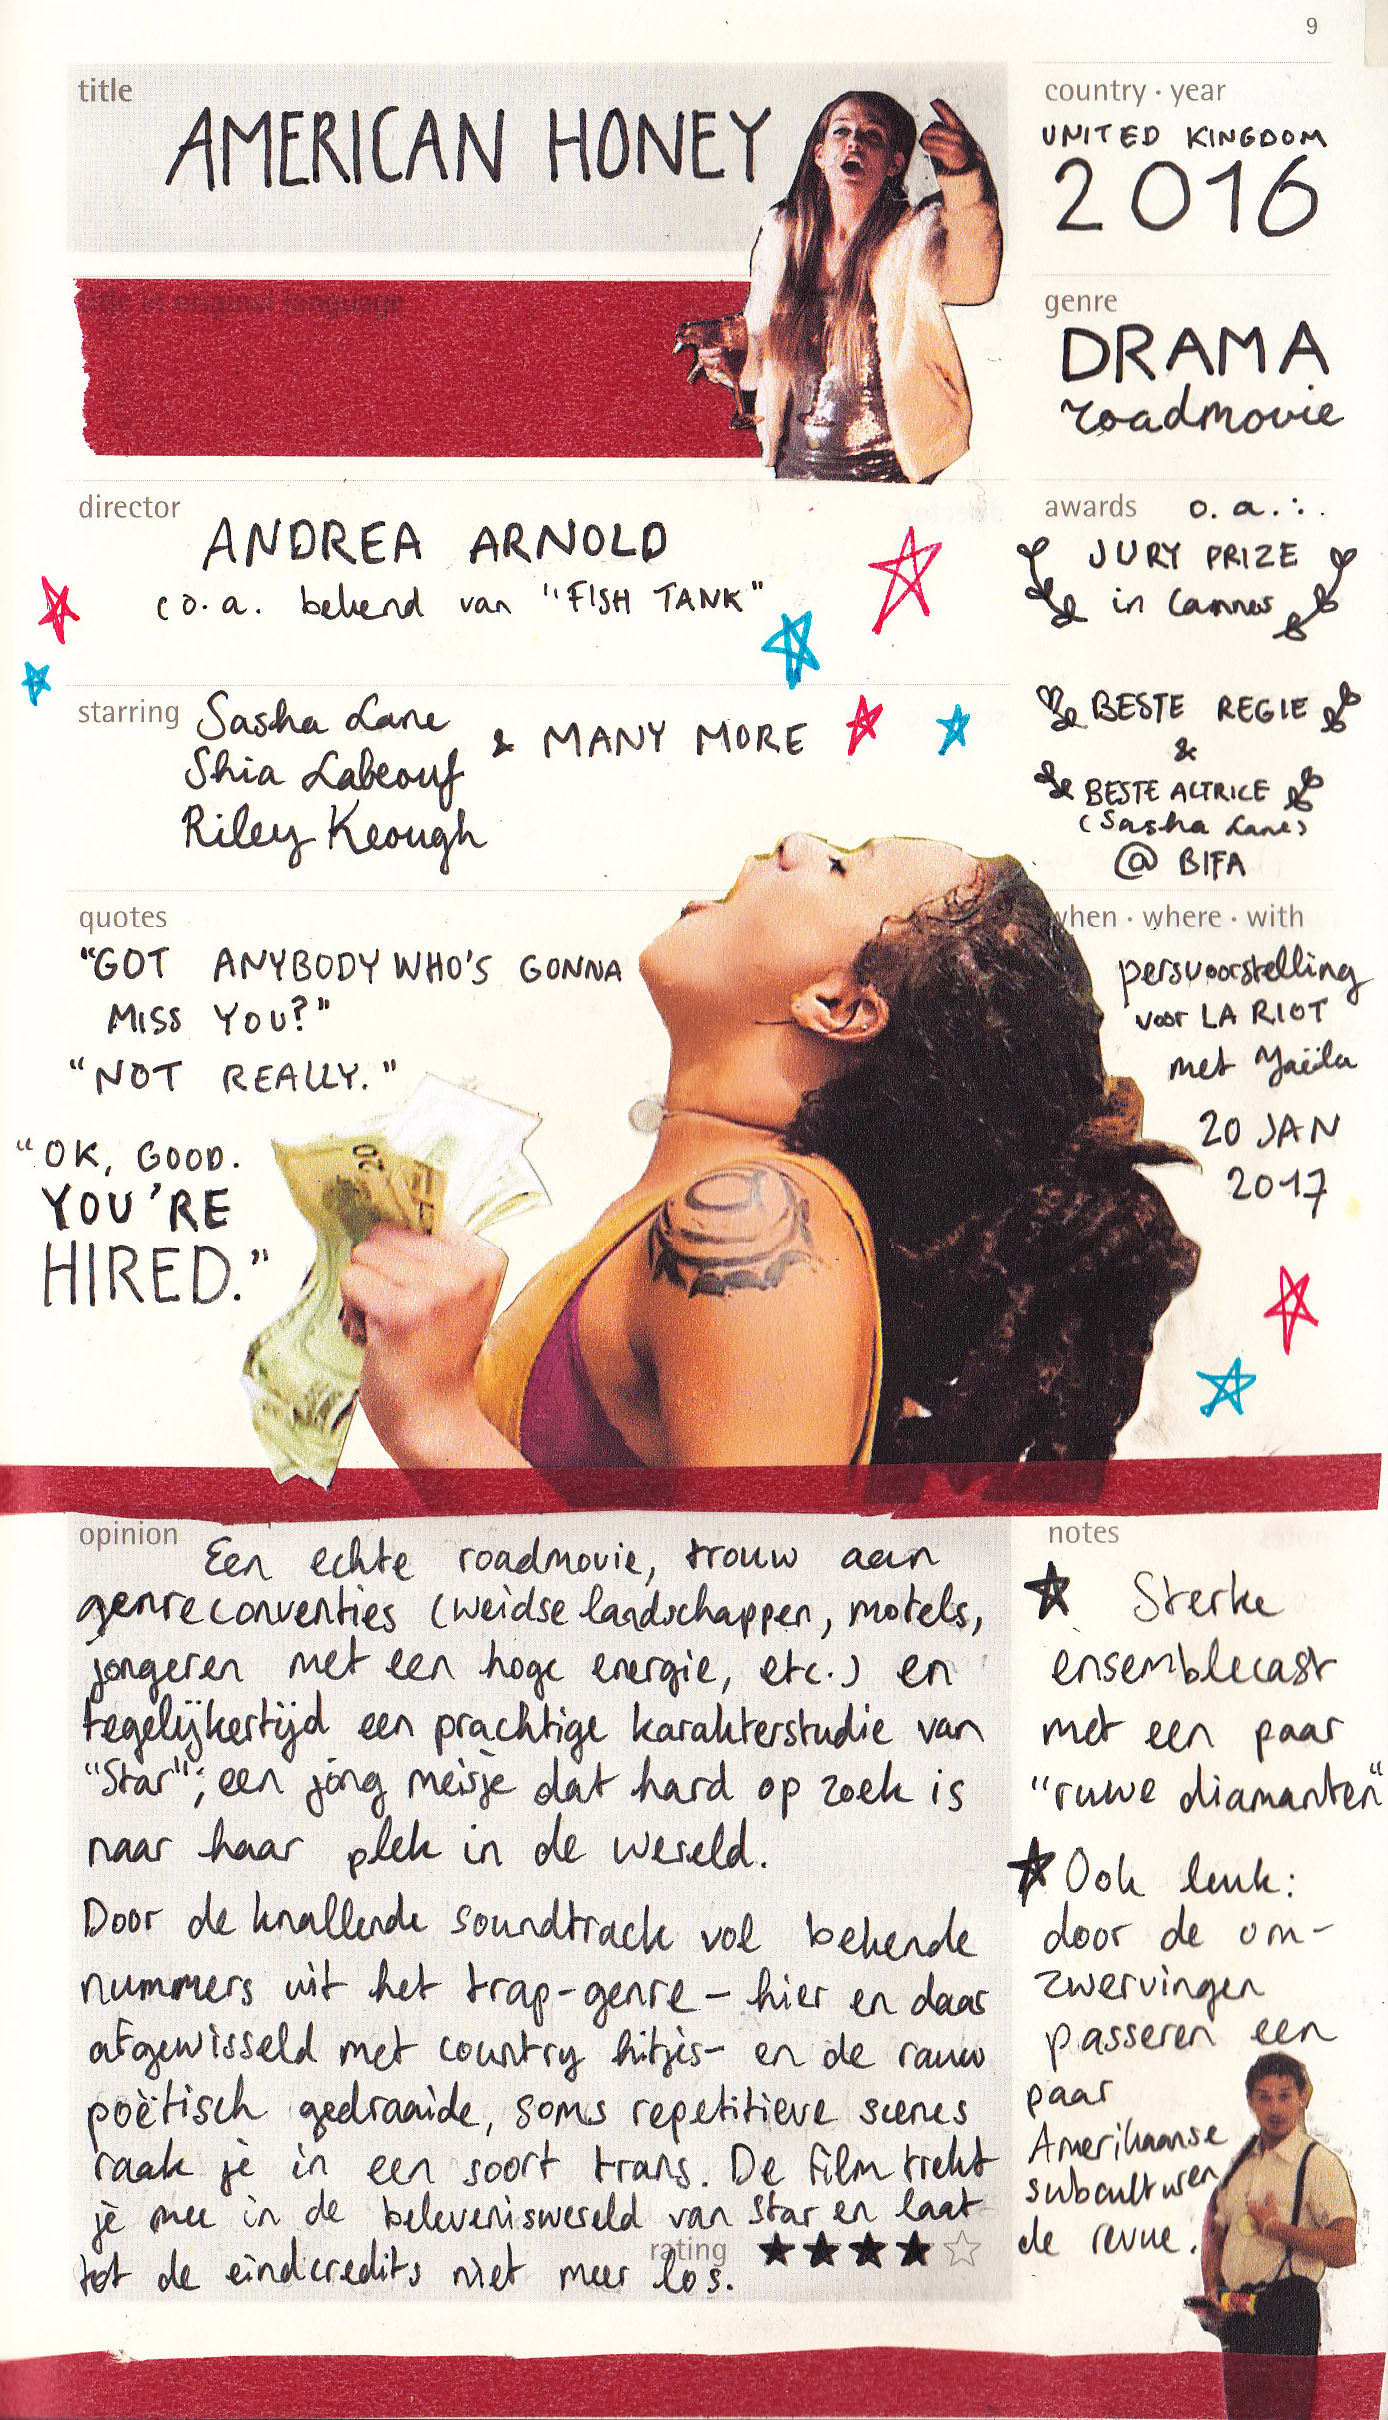 9
title
AMERICAN HONEY
country · year
UNITED KINGDOM
2016
title in original language
genre
DRAMA
roadmovie
director
ANDREA ARNOLD
(o.a. bekend van "FISH TANK"
awards o.a.:
JURY PRIZE
in Cannes
BESTE REGIE
&
BESTE ACTRICE
(Sasha Lane)
@ BIFA
starring
Sasha Lane
Shia Labeouf
Riley Keough
& MANY MORE
quotes
"GOT ANYBODY WHO'S GONNA
MISS YOU?"
"NOT REALLY."
"OK, GOOD.
YOU'RE
HIRED."
when · where · with
persvoorstelling
voor LA RIOT
met Yaëla
20 JAN
2017
20
opinion
Een echte roadmovie, trouw aan
genreconventies (weidse landschappen, motels,
jongeren met een hoge energie, etc.) en
tegelijkertijd een prachtige karakterstudie van
"Star"; een jong meisje dat hard op zoek is
naar haar plek in de wereld.
Door de knallende soundtrack vol bekende
nummers uit het trap-genre - hier en daar
afgewisseld met country hitjes - en de rauw
poëtisch gedraaide, soms repetitieve scenes
raak je in een soort trans. De film trekt
je mee in de beleveniswereld van Star en laat
tot de eindcredits niet meer los.
rating ★★★★☆
notes
★ Sterke
ensemblecast
met een paar
"ruwe diamanten"
★ Ook leuk:
door de om-
zwervingen
passeren een
paar
Amerikaanse
subculturen
de revue.